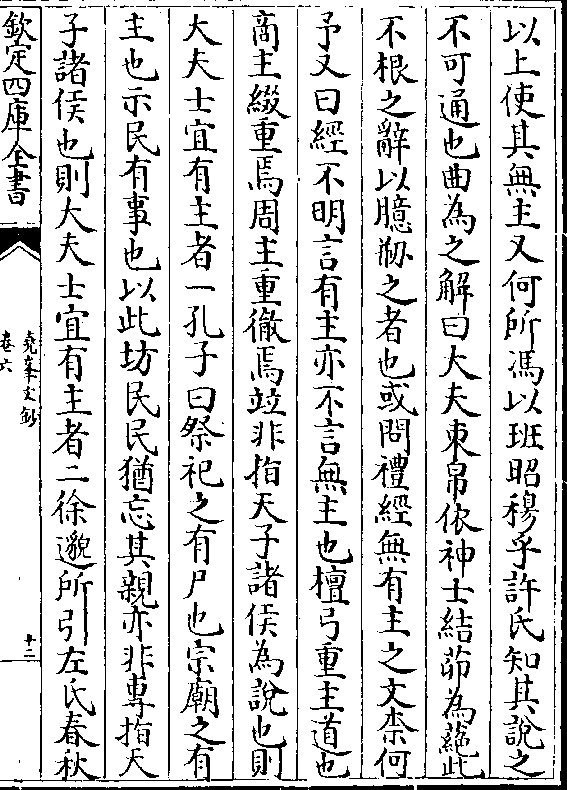 以上使其無主又何所馮以班昭穆乎許氏知其說之
不可通也曲為之解曰大夫束帛依神士結茆為蕝此
不根之辭以臆剏之者也或問禮經無有主之文柰何
予又曰經不明言有主亦不言無主也檀弓重主道也
商主綴重焉周主重徹焉竝非指天子諸侯為說也則
大夫士宜有主者一孔子曰祭祀之有尸也宗廟之有
主也示民有事也以此坊民民猶忘其親亦非專指天
子諸侯也則大夫士宜有主者二徐邈所引左氏春秋
欽定四庫全書
堯峯文鈔
卷六
十二